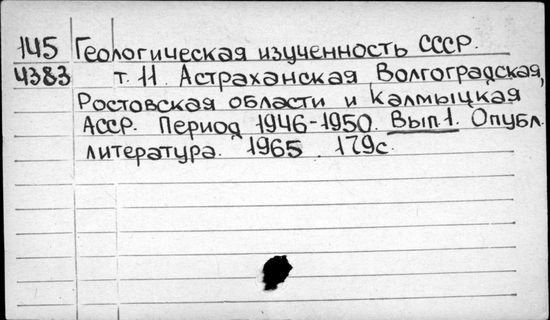 145 Геологическая изученность СССР.
4383 т. 11. Астраханская Волгоградская,
Ростовская области и Калмыцкая
АССР. Период 1946-1950. Вып1. Опубл.
литература. 1965 179с.